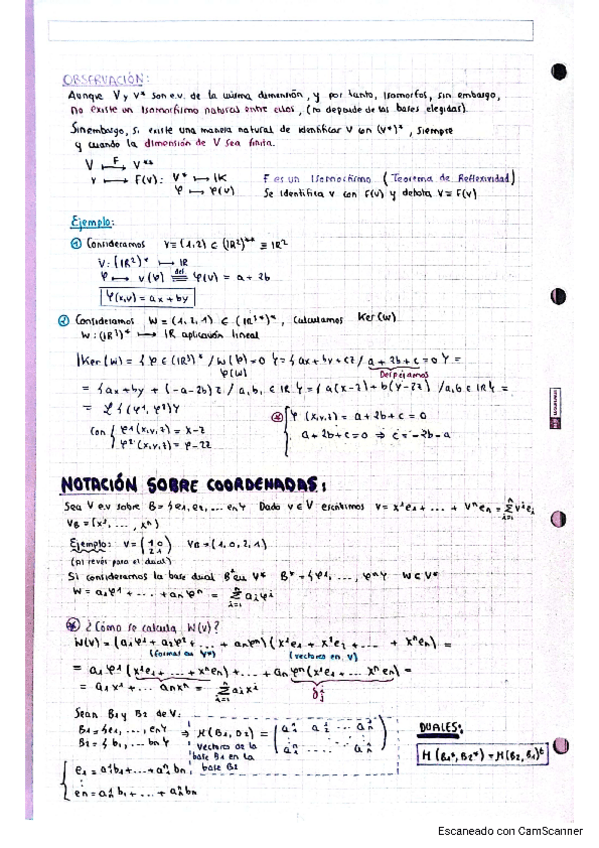 OBSERVACIÓN:
Aunque V y V* son e.v. de la misma dimensión, y por tanto, isomorfos, sin embargo,
no existe un isomorfismo natural entre ellos, (no depende de las bases elegidas).
Sin embargo, si existe una manera natural de identificar V con (V*)*, siempre
y cuando la dimensión de V sea finita.
V ⟼ V** F
v ⟼ F(v): V* ⟼ IK F es un Isomorfismo (Teorema de Reflexividad)
φ ⟼ φ(v) Se identifica v con F(v) y denota V ≡ F(v)
Ejemplo:
① Consideramos v = (1,2) ∈ (IR²)** ≡ IR²
v: (IR²)* ⟼ IR
φ ⟼ v(φ) def= φ(v) = a + 2b
φ(x,y) = ax + by
② Consideramos w = (1,2,1) ∈ (IR³*)*, calculamos Ker(w)
w: (IR³)* ⟼ IR aplicación lineal
Ker(w) = {φ ∈ (IR³)* / w(φ) = 0} = {ax + by + cz / a + 2b + c = 0} =
φ(w) Despejamos
= {ax + by + (-a-2b)z / a, b, ∈ IR} = {a(x-z) + b(y-2z) / a, b ∈ IR} =
= L{(φ1, φ2)}
con { φ1(x,y,z) = x-z
φ2(x,y,z) = y-2z
* { φ(x,y,z) = a + 2b + c = 0
a + 2b + c = 0 ⇒ c = -2b - a
NOTACIÓN SOBRE COORDENADAS:
Sea V e.v sobre B = {e1, e2, ... en} Dado v ∈ V escribimos v = x¹e1 + ... + vⁿen = Σ vⁱei
VB = (x¹, ..., xⁿ)
Ejemplo: v = (1 0
2 1) VB = (1, 0, 2, 1)
(al revés para el dual)
Si consideramos la base dual B* en V* B* = {φ1, ..., φn} w ∈ V*
w = a1φ1 + ... + anφn = Σ aiφi
* ¿Cómo se calcula w(v)?
w(v) = (a1φ1 + a2φ2 + ... + anφn) (x¹e1 + x²e2 + ... + xⁿen) =
(formas en V*) (vectores en V)
= a1 φ1 (x¹e1 + ... + xⁿen) + ... + an φn (x¹e1 + ... xⁿen) =
= a1 x¹ + ... an xⁿ = Σ ai xⁱ
Sean B1 y B2 de V:
B1 = {e1, ..., en}
B2 = {b1, ... bn} ⇒ M(B1, B2) =
Vectores de la
base B1 en la
base B2
DUALES:
M(B1*, B2*) = M(B2, B1)t
{ e1 = a¹b1 + ... + aⁿ bn
⋮
en = a¹n b1 + ... + aⁿn bn
Escaneado con CamScanner